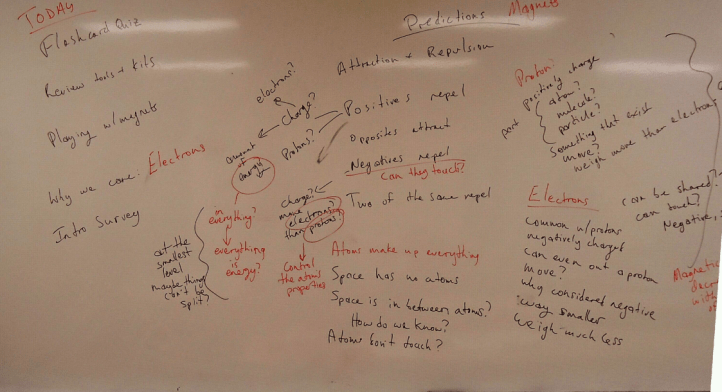 TODAY
Flashcard Quiz
Review tools + kits
Playing w/ magnets
Why we care: Electrons
Intro Survey
Predictions
Magnets
Attraction + Repulsion
Positives repel
Opposites attract
Negatives repel
Can they touch?
Two of the same repel
Atoms make up everything
Space has no atoms
Space is in between atoms?
How do we know?
Atoms don't touch?
electrons?
Charge?
Protons?
amount
of
energy
in
everything?
everything
is
energy?
at the
smallest
level
maybe thing
can't be
split?
charge?
more
electrons?
than protons
Control
the atoms
properties
Proton
positively charge
atom?
molecule?
particle?
part
Something that exist
move?
weigh more than electrons
Electrons
Common w/ protons
negatively charged
can even out a proton
move?
why considered negative
way smaller
weigh much less
can be shared?
can touch?
Negative